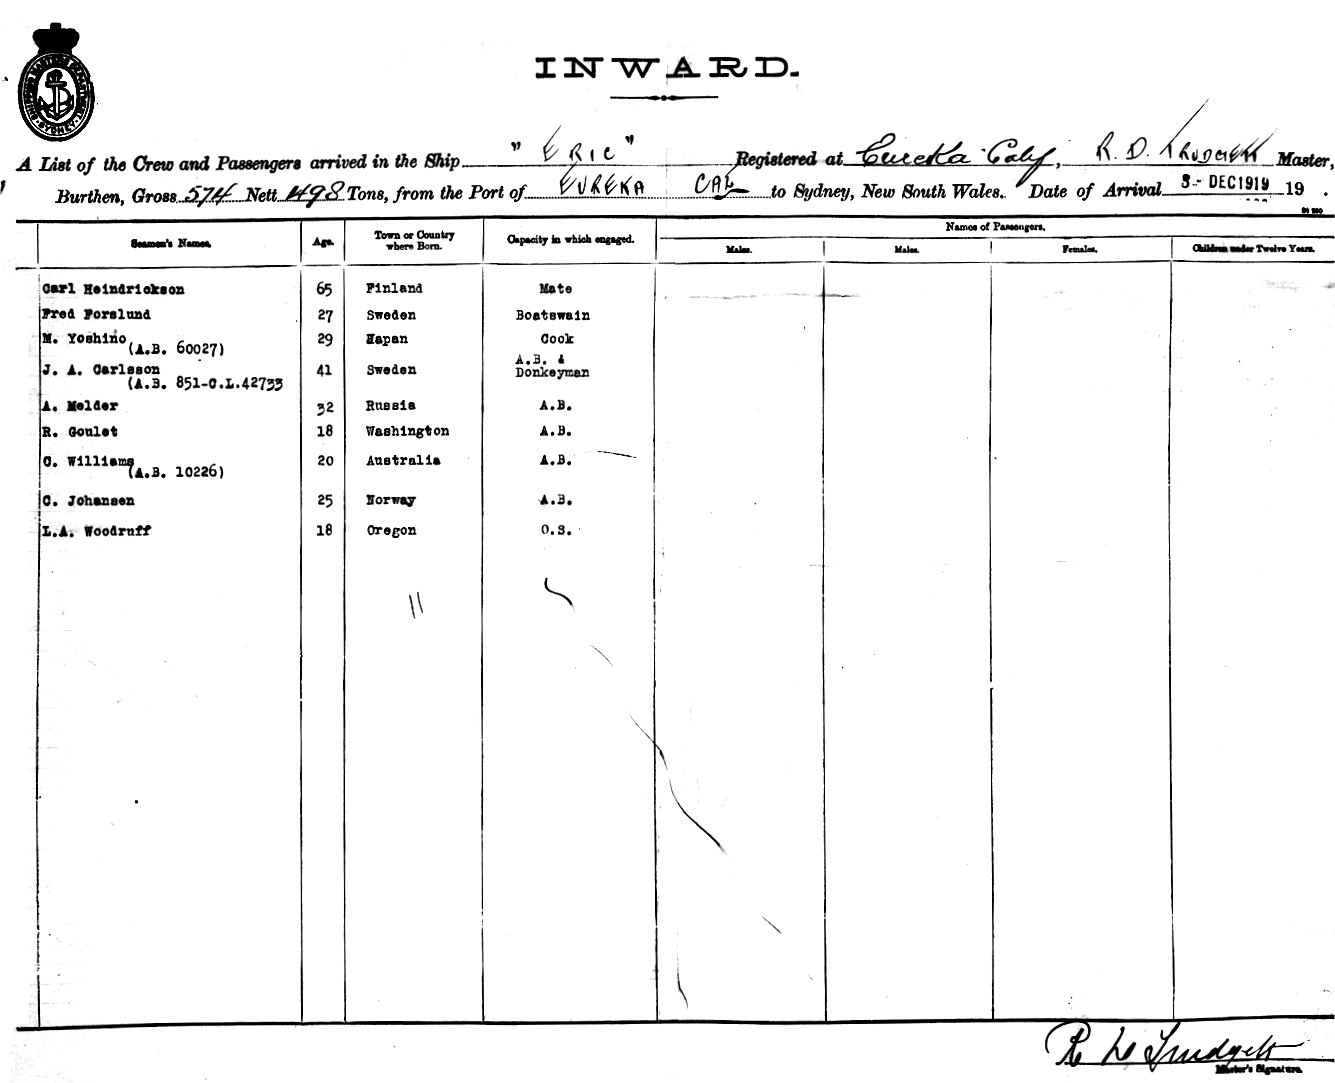 SHIPPING MASTERS DEPARTMENT SYDNEY
INWARD.
A List of the Crew and Passengers arrived in the Ship " ERIC " Registered at Eureka Calif, R. D. TRUDGETT Master,
Burthen, Gross 574 Nett 498 Tons, from the Port of EUREKA CAL to Sydney, New South Wales. Date of Arrival 3- DEC 1919 19 .
Seamen's Names. Age. Town or Country where Born. Capacity in which engaged. Names of Passengers.
Males. Males. Females. Children under Twelve Years.
Carl Heindrickson 65 Finland Mate
Fred Forslund 27 Sweden Boatswain
M. Yoshino 29 Hapan Cook
(A.B. 60027)
J. A. Carlsson 41 Sweden A.B. & Donkeyman
(A.B. 851-C.L.42733
A. Melder 32 Russia A.B.
R. Goulet 18 Washington A.B.
C. Williams 20 Australia A.B.
(A.B. 10226)
C. Johansen 25 Norway A.B.
L.A. Woodruff 18 Oregon O.S.
11
R D Trudgett
Master's Signature.